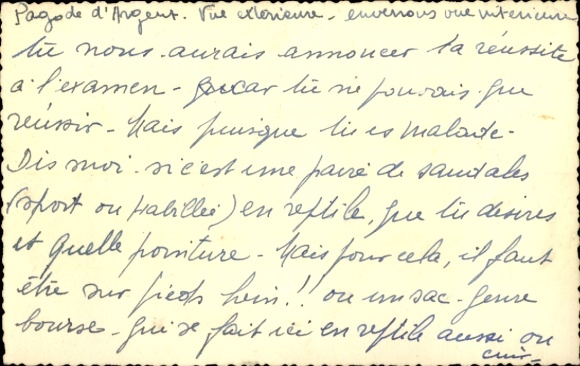 Pagode d'Argent. Vue extérieure - enverrons vue intérieure
tu nous aurais annoncer ta réussite
à l'examen - car tu ne pouvais que
réussir - Mais puisque tu es malade -
Dis moi si c'est une paire de sandales
(sport ou habillée) en reptile, que tu désires
et quelle pointure - Mais pour cela, il faut
être sur pieds hein!! ou un sac - genre
bourse - qui se fait ici en reptile aussi ou
cuir -